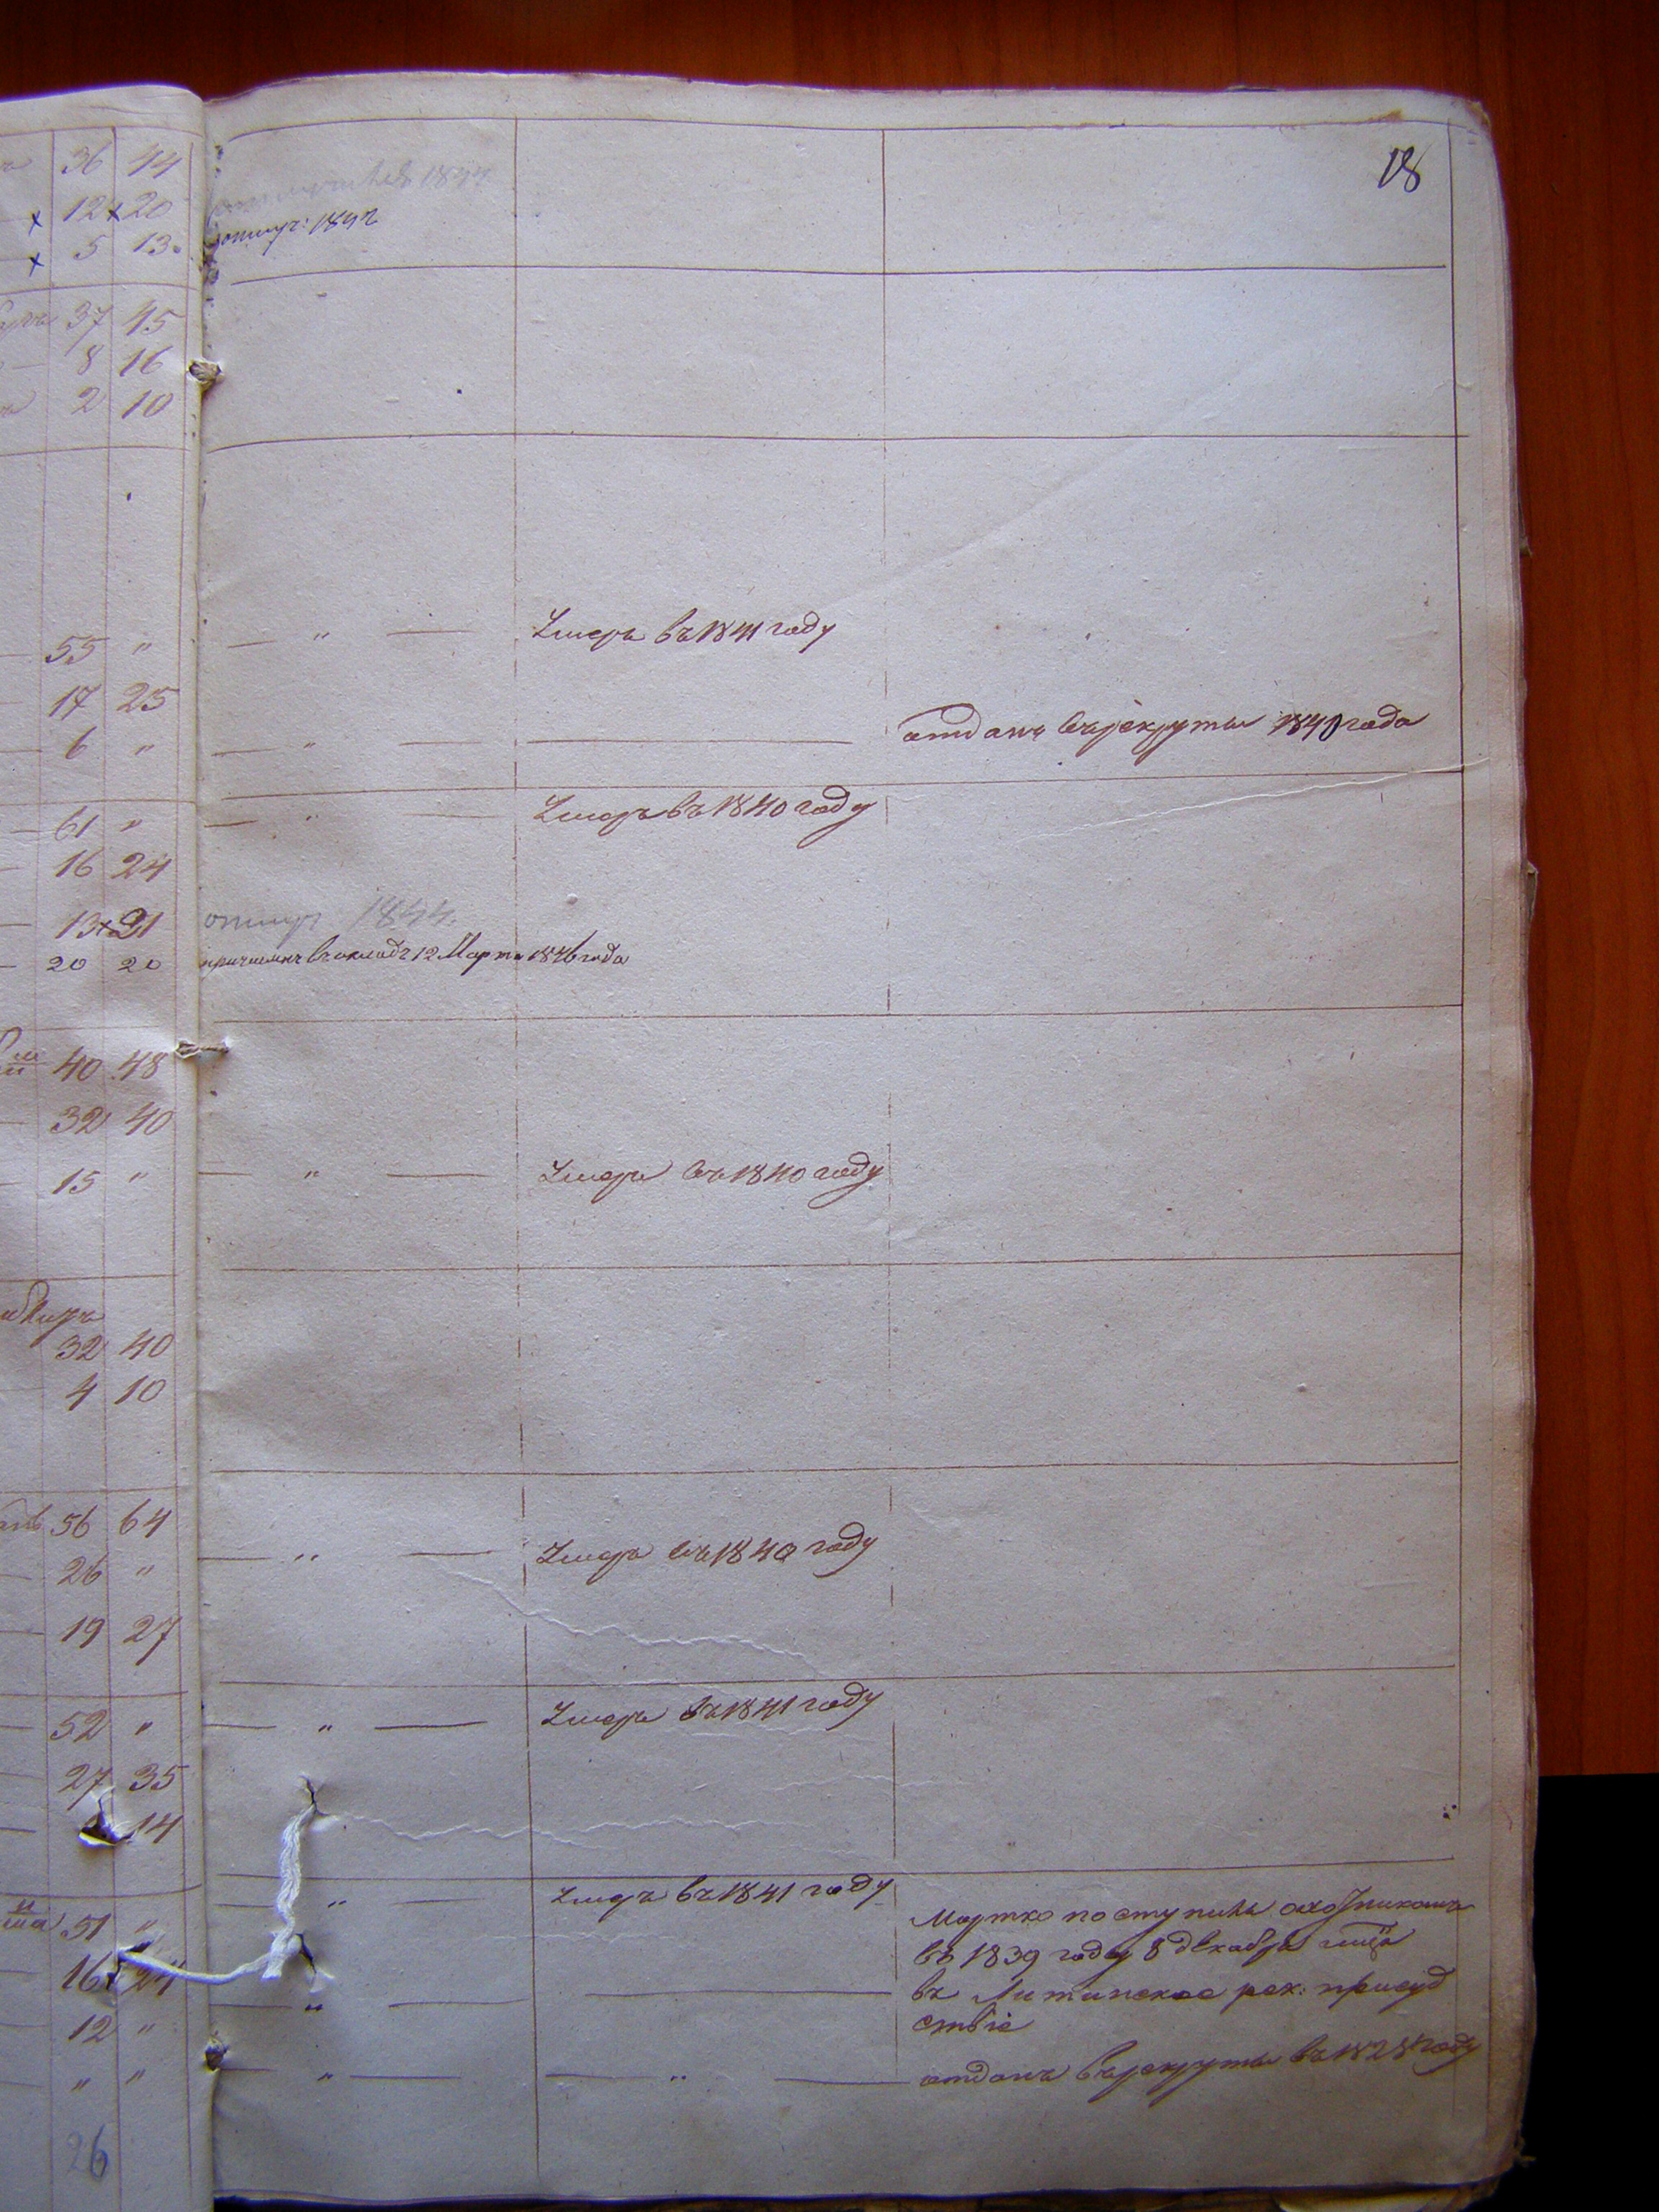 18
36 44
12 x 20
x 5 13.
x
отпущ: 1842
37 45
8 16
2 10
55 " — " — Умеръ въ 1841 году
17 25
6 " — " — отданъ въ рекруты 1840 года
61 " — " — Умеръ въ 1840 году
16 24
13 x 21 отпущ 1844.
20 20 причисленъ въ окладъ 12 Марта 1846 года
40 48
32 40
15 " — " — Умеръ въ 1840 году
32 40
4 10
56 64
26 " — " — Умеръ въ 1840 году
19 27
52 " — " — Умеръ въ 1841 году
27 35
14
51 " — " — Умеръ въ 1841 году
Мартко поступилъ охотникомъ
въ 1839 году 8 декабря
16 x 24
въ Литинское рек: присуд
12 " — " —
ствіе
" " — " — " — отданъ въ рекруты въ 1828 году
26